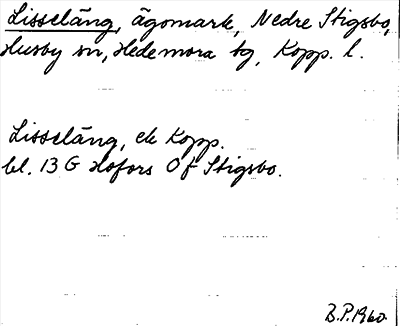 Lisseläng, ägomark, Nedre Stigsbo,
Husby sn, Hedemora tg, Kopp. l.
Lisseläng, ek Kopp.
bl. 13 G Hofors 0f Stigsbo.
B.P. 1960